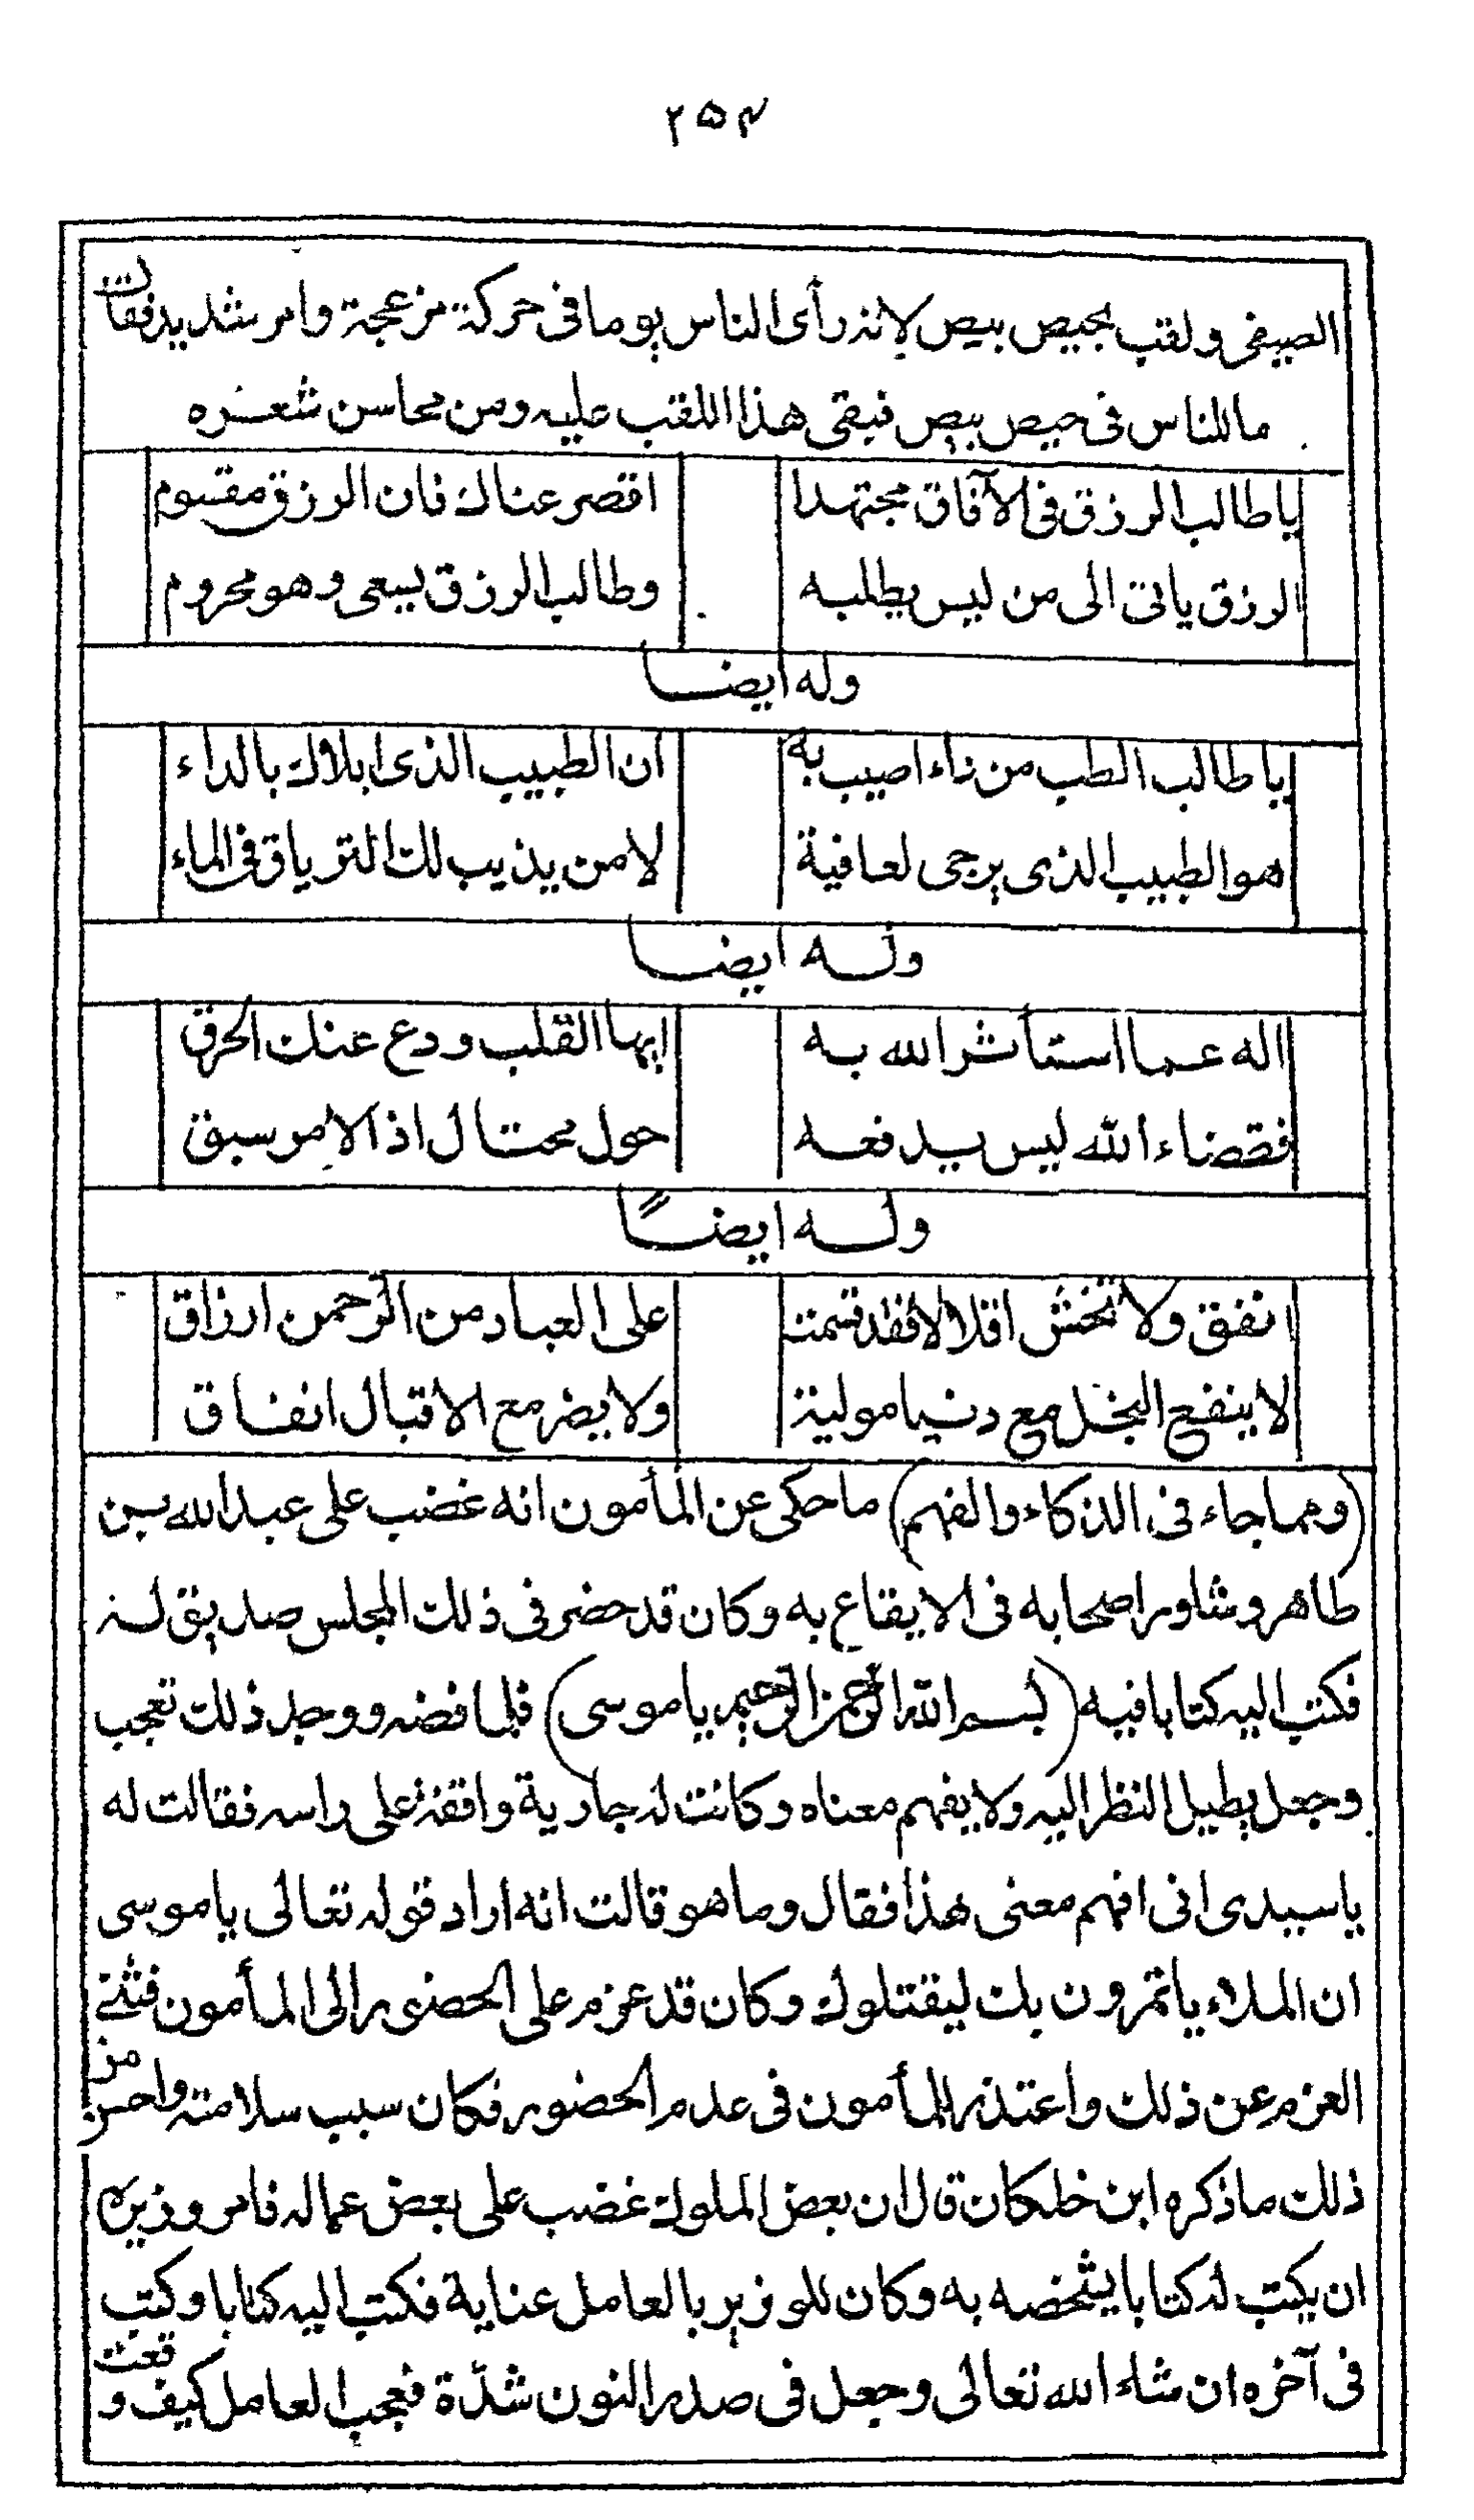 ٢٥٤
الصيفى ولقب بحيص بيص لانه رأى الناس يوما فى حركة مزعجة وامر شديد فقال
ما للناس فى حيص بيص فبقى هذا اللقب عليه ومن محاسن شعره
ياطالب الرزق فى الآفاق مجتهدا اقصر عناك فان الرزق مقسوم
الرزق ياتى الى من ليس يطلبه وطالب الرزق يسعى وهو محروم
وله ايضا
ياطالب الطب من داء اصيب به ان الطبيب الذى ابلاك بالداء
هو الطبيب الذى يرجى لعافية لا من يذيب لك الترياق فى الماء
وله ايضا
اله عما استأثر الله به ايها القلب ودع عنك الحرق
فقضاء الله ليس يدفعه حول محتال اذ الامر سبق
وله ايضًا
انفق ولا تخش اقلالا فقد قسمت على العباد من الرحمن ارزاق
لا ينفع البخل مع دنيا مولية ولا يضر مع الاقبال انفاق
(ومما جاء فى الذكاء والفهم) ما حكى عن المأمون انه غضب على عبد الله بن
طاهر وشاور اصحابه فى الايقاع به وكان قد حضر فى ذلك المجلس صديق له
فكتب اليه كتابا فيه (بسم الله الرحمن الرحيم ياموسى) فلما فضه ووجد ذلك تعجب
وجعل يطيل النظر اليه ولا يفهم معناه وكانت له جارية واقفة على راسه فقالت له
ياسيدى انى افهم معنى هذا فقال وما هو قالت انه اراد قوله تعالى ياموسى
ان الملاء ياتمرون بك ليقتلوك وكان قد عزم على الحضور الى المأمون فثنى
العزم عن ذلك واعتذر للمأمون فى عدم الحضور فكان سبب سلامته واحسن من
ذلك ما ذكره ابن خلكان قال ان بعض الملوك غضب على بعض عماله فامر وزيره
ان يكتب له كتابا يشخصه به وكان للوزير بالعامل عناية فكتب اليه كتابا وكتب
فى آخره ان شاء الله تعالى وجعل فى صدر النون شدّة فعجب العامل كيف وقعت